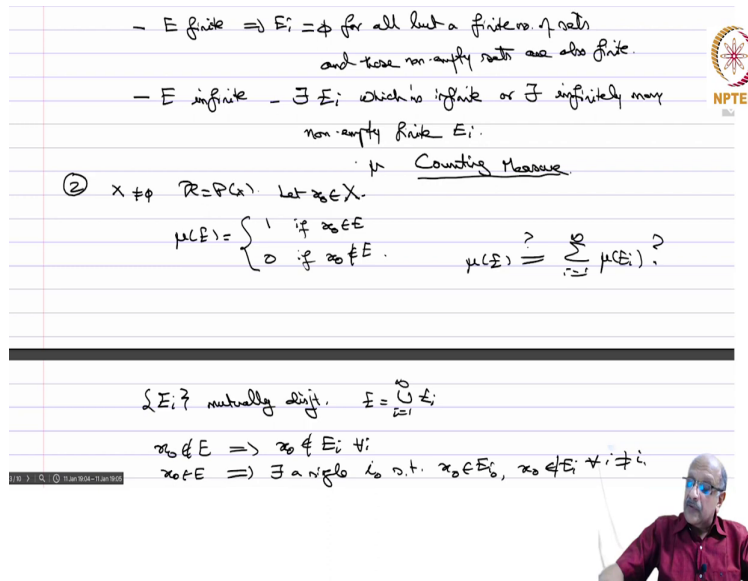 - E finite => Ei = φ for all but a finite no. of sets
and those non-empty sets are also finite.
- E infinite - ∃ Ei which is infinite or ∃ infinitely many
non-empty finite Ei.
μ Counting Measure.
② X ≠ φ R = P(X). Let x₀ ∈ X.
μ(E) = { 1 if x₀ ∈ E
0 if x₀ ∉ E.
μ(E) ?= ∞ Σ i=1 μ(Ei)?
{Ei} mutually disjt. E = ∞ ∪ i=1 Ei
x₀ ∉ E => x₀ ∉ Ei ∀i
x₀ ∈ E => ∃ a single i₀ s.t. x₀ ∈ Ei₀, x₀ ∉ Ei ∀ i ≠ i.
NPTE
11 Jan 19:04 – 11 Jan 19:05